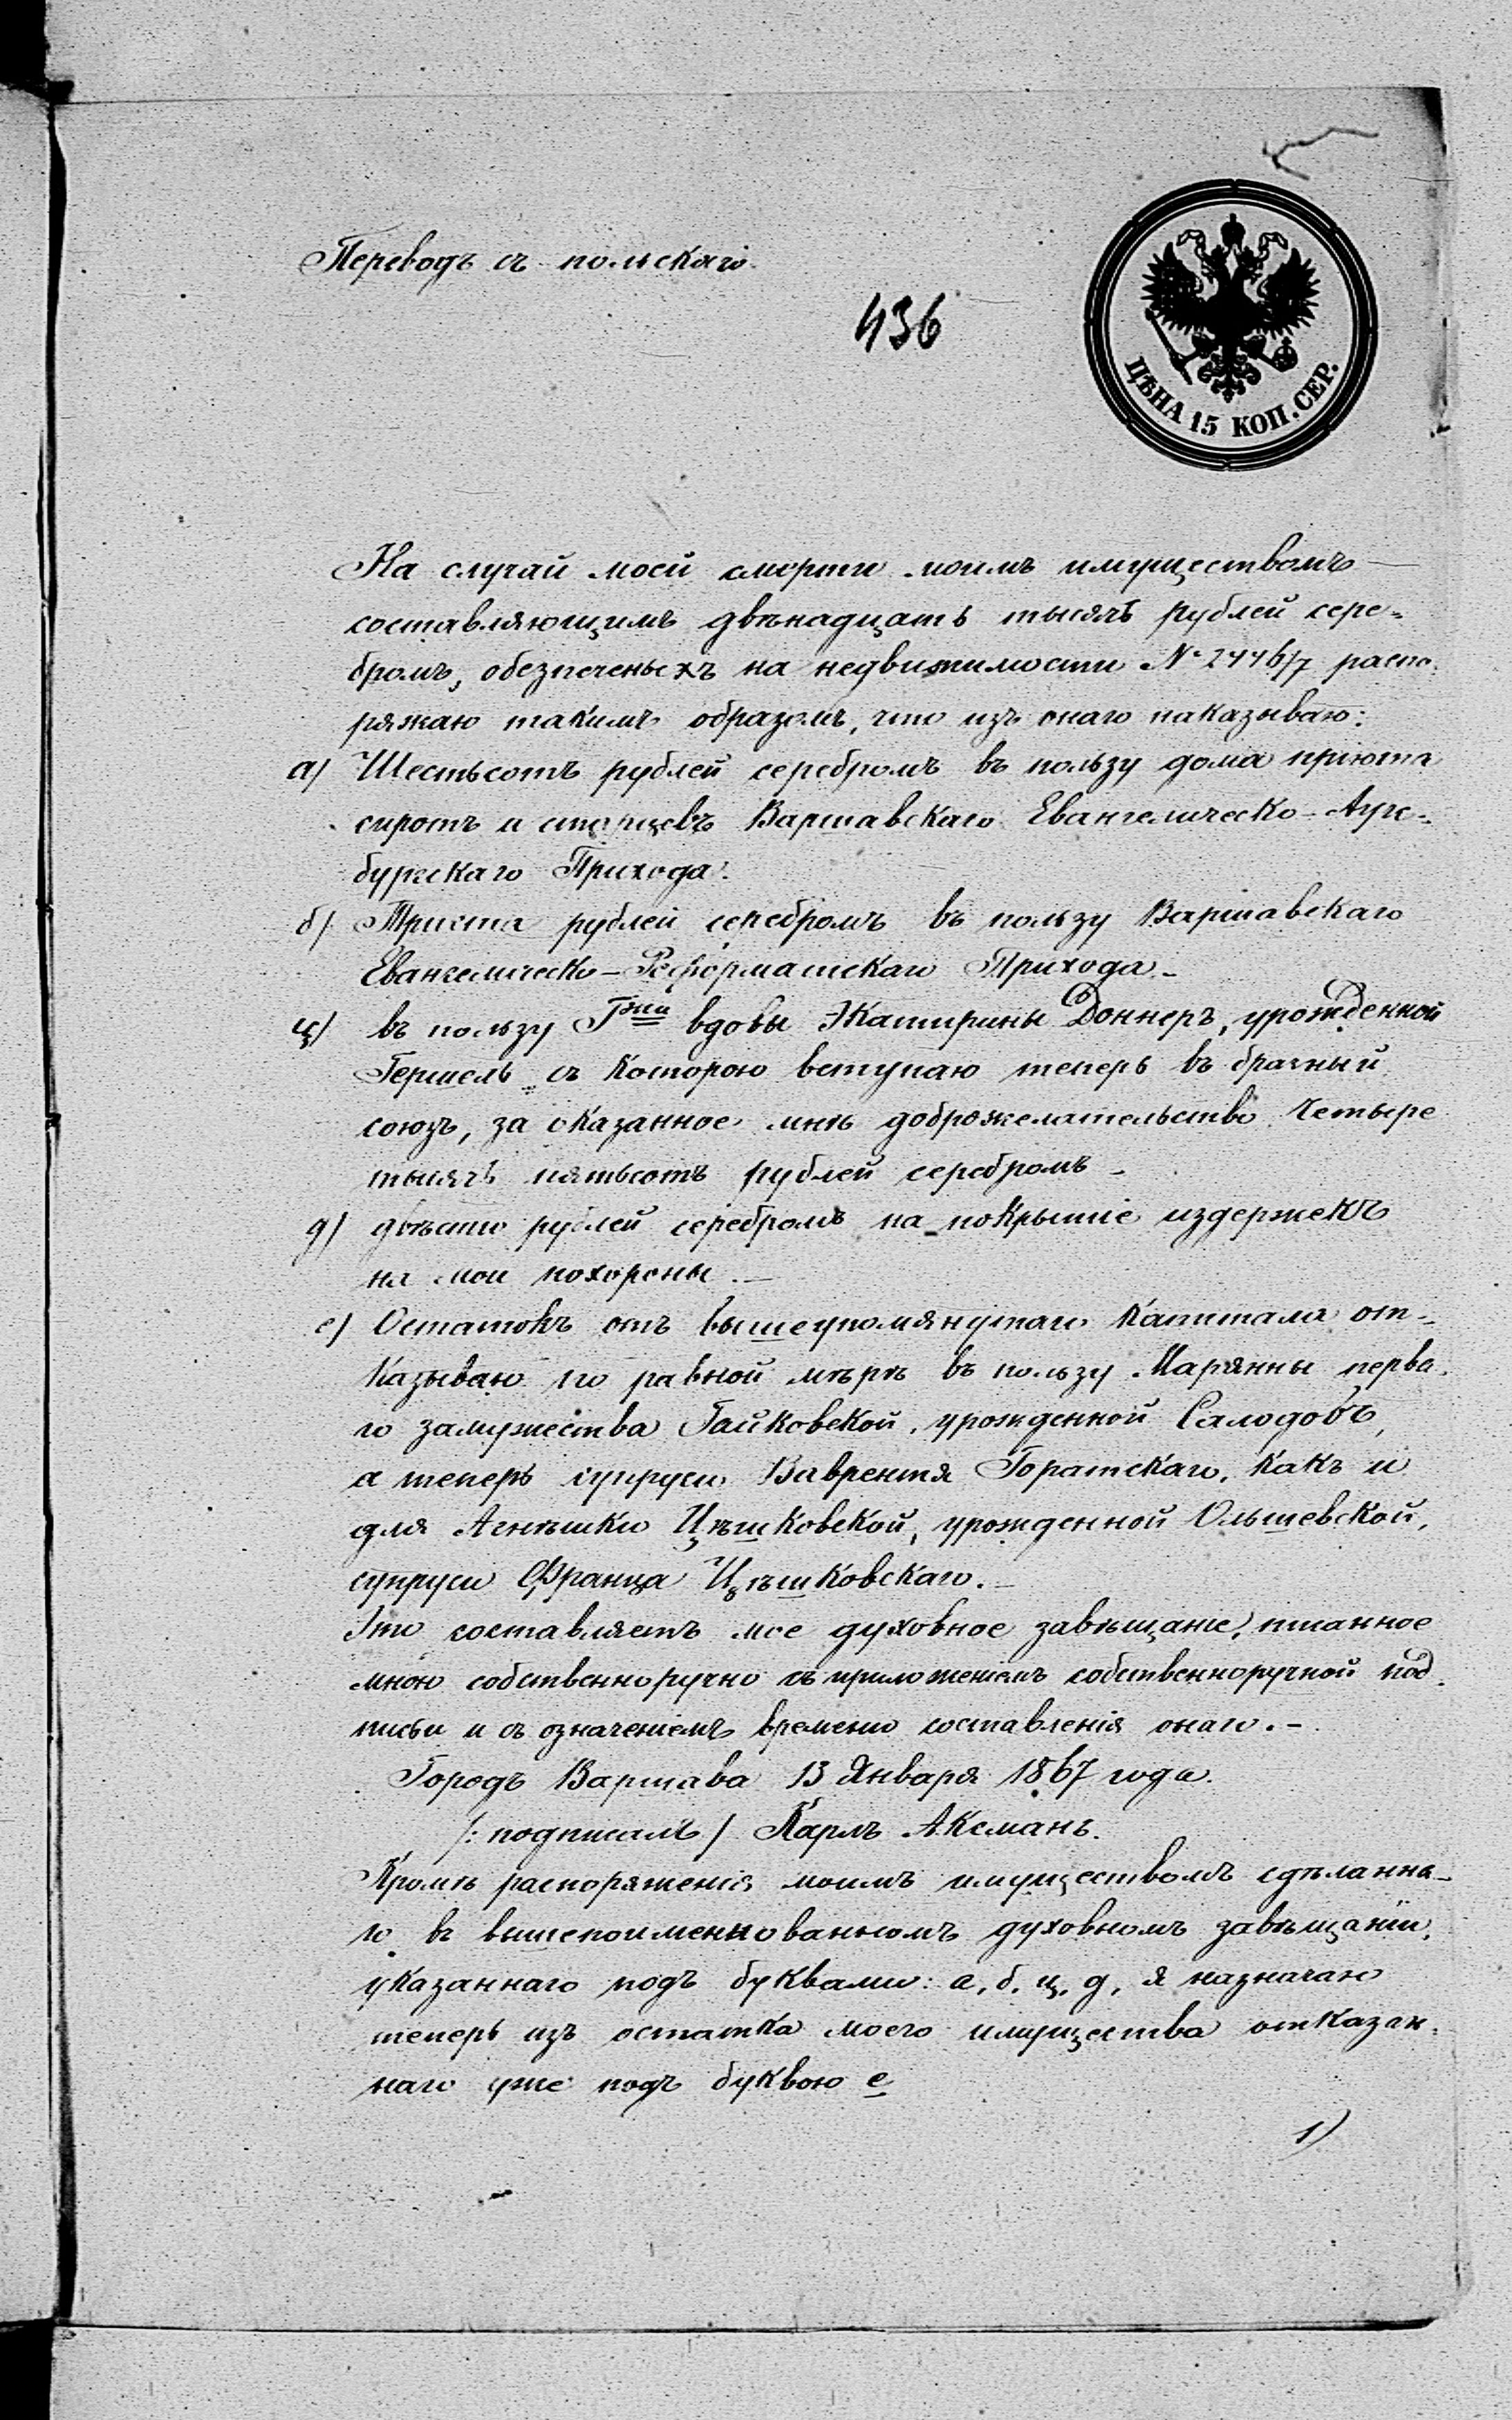 Переводъ съ польскаго.
436
ЦѢНА 15 КОП. СЕР.
На случай моей смерти моимъ имуществомъ —
составляющимъ двѣнадцать тысячъ рублей сере-
бромъ, обезпеченыхъ на недвижимости № 2446/7 распо-
ряжаю такимъ образомъ, что изъ онаго наказываю:
а) Шестьсотъ рублей серебромъ въ пользу дома пріюта
сиротъ и старцевъ Варшавскаго Евангелическо-Аугс-
бургскаго Прихода.
б) Триста рублей серебромъ въ пользу Варшавскаго
Евангелическо-Реформатскаго Прихода. –
ц) въ пользу Г-жи вдовы Экатирины Доннеръ, урожденной
Гершель съ которою вступаю теперь въ брачный
союзъ, за оказанное мнѣ доброжелательство Четыре
тысячъ пятьсотъ рублей серебромъ –
д) двѣсти рублей серебромъ на покрытіе издержекъ
на мои похороны. —
е) Остатокъ отъ вышеупомянутаго капитала от-
казываю по равной мѣрѣ въ пользу Марянны перва-
го замужества Гайковской, урожденной
а теперь супруги Ваврентя Горатскаго, какъ и
для Агнѣшки Цѣшковской, урожденной Ольшевской,
супруги Франца Цѣшковскаго. –
Это составляетъ мое духовное завѣщаніе, писанное
мною собственноручно съ приложеніемъ собственноручной под-
писи и съ означеніемъ времени составленія онаго. –
Городъ Варшава 13 Января 1867 года.
/: подписалъ / Карлъ Аксманъ.
Кромѣ распоряженія моимъ имуществомъ сдѣланна-
го въ вышепоименнованномъ духовномъ завѣщаніи,
указаннаго подъ буквами: а, б, ц, д, я назначаю
теперь изъ остатка моего имущества отказан-
наго уже подъ буквою е
1)